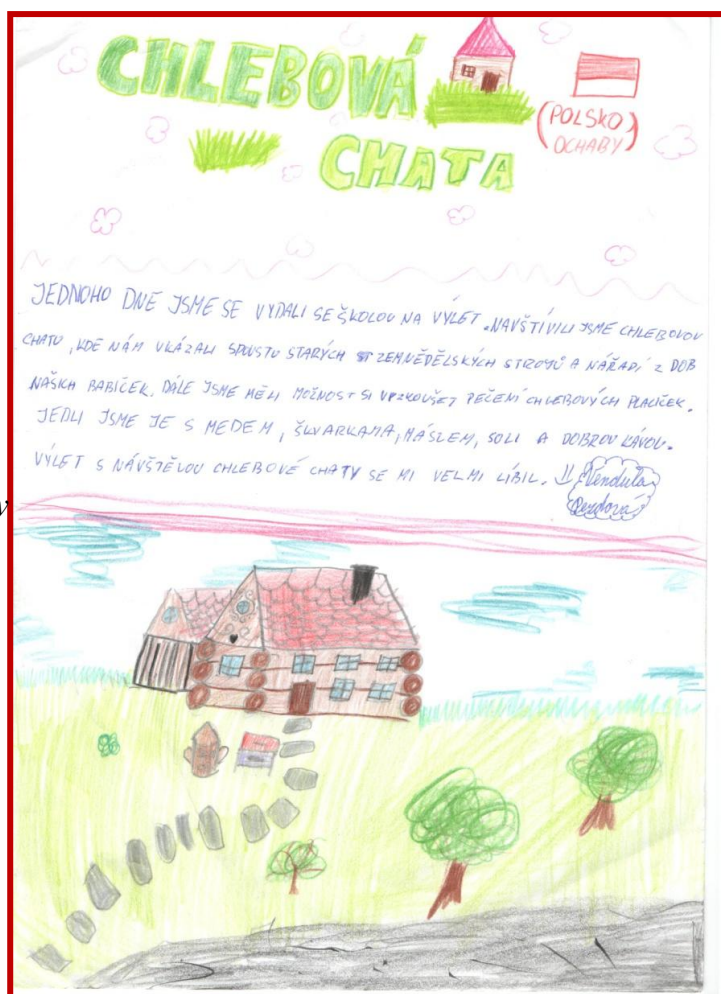 CHLEBOVÁ
CHATA
(POLSKO)
OCHABY
JEDNOHO DNE JSME SE VYDALI SE ŠKOLOU NA VÝLET. NAVŠTÍVILI JSME CHLEBOVOU
CHATU, KDE NÁM UKÁZALI SPOUSTU STARÝCH ZEMNĚDĚLSKÝCH STROJŮ A NÁŘADÍ Z DOB
NAŠICH BABIČEK. DÁLE JSME MĚLI MOŽNOST SI VYZKOUŠET PEČENÍ CHLEBOVÝCH PLACIČEK.
JEDLI JSME JE S MEDEM, ŠKVARKAMA, MÁSLEM, SOLI A DOBROU KÁVOU.
VÝLET S NÁVŠTĚVOU CHLEBOVÉ CHATY SE MI VELMI LÍBIL. Vendula
v